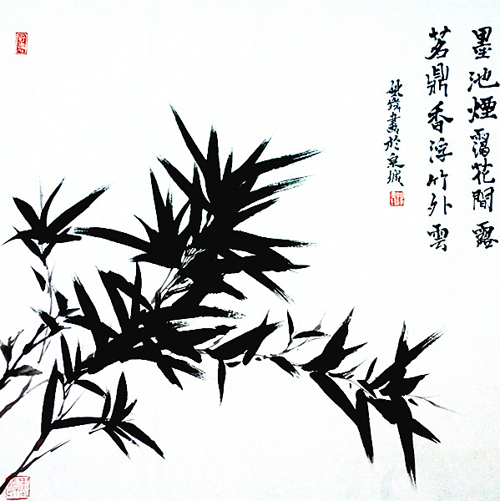 墨池煙靄花間露
茗鼎香浮竹外雲
於泉城